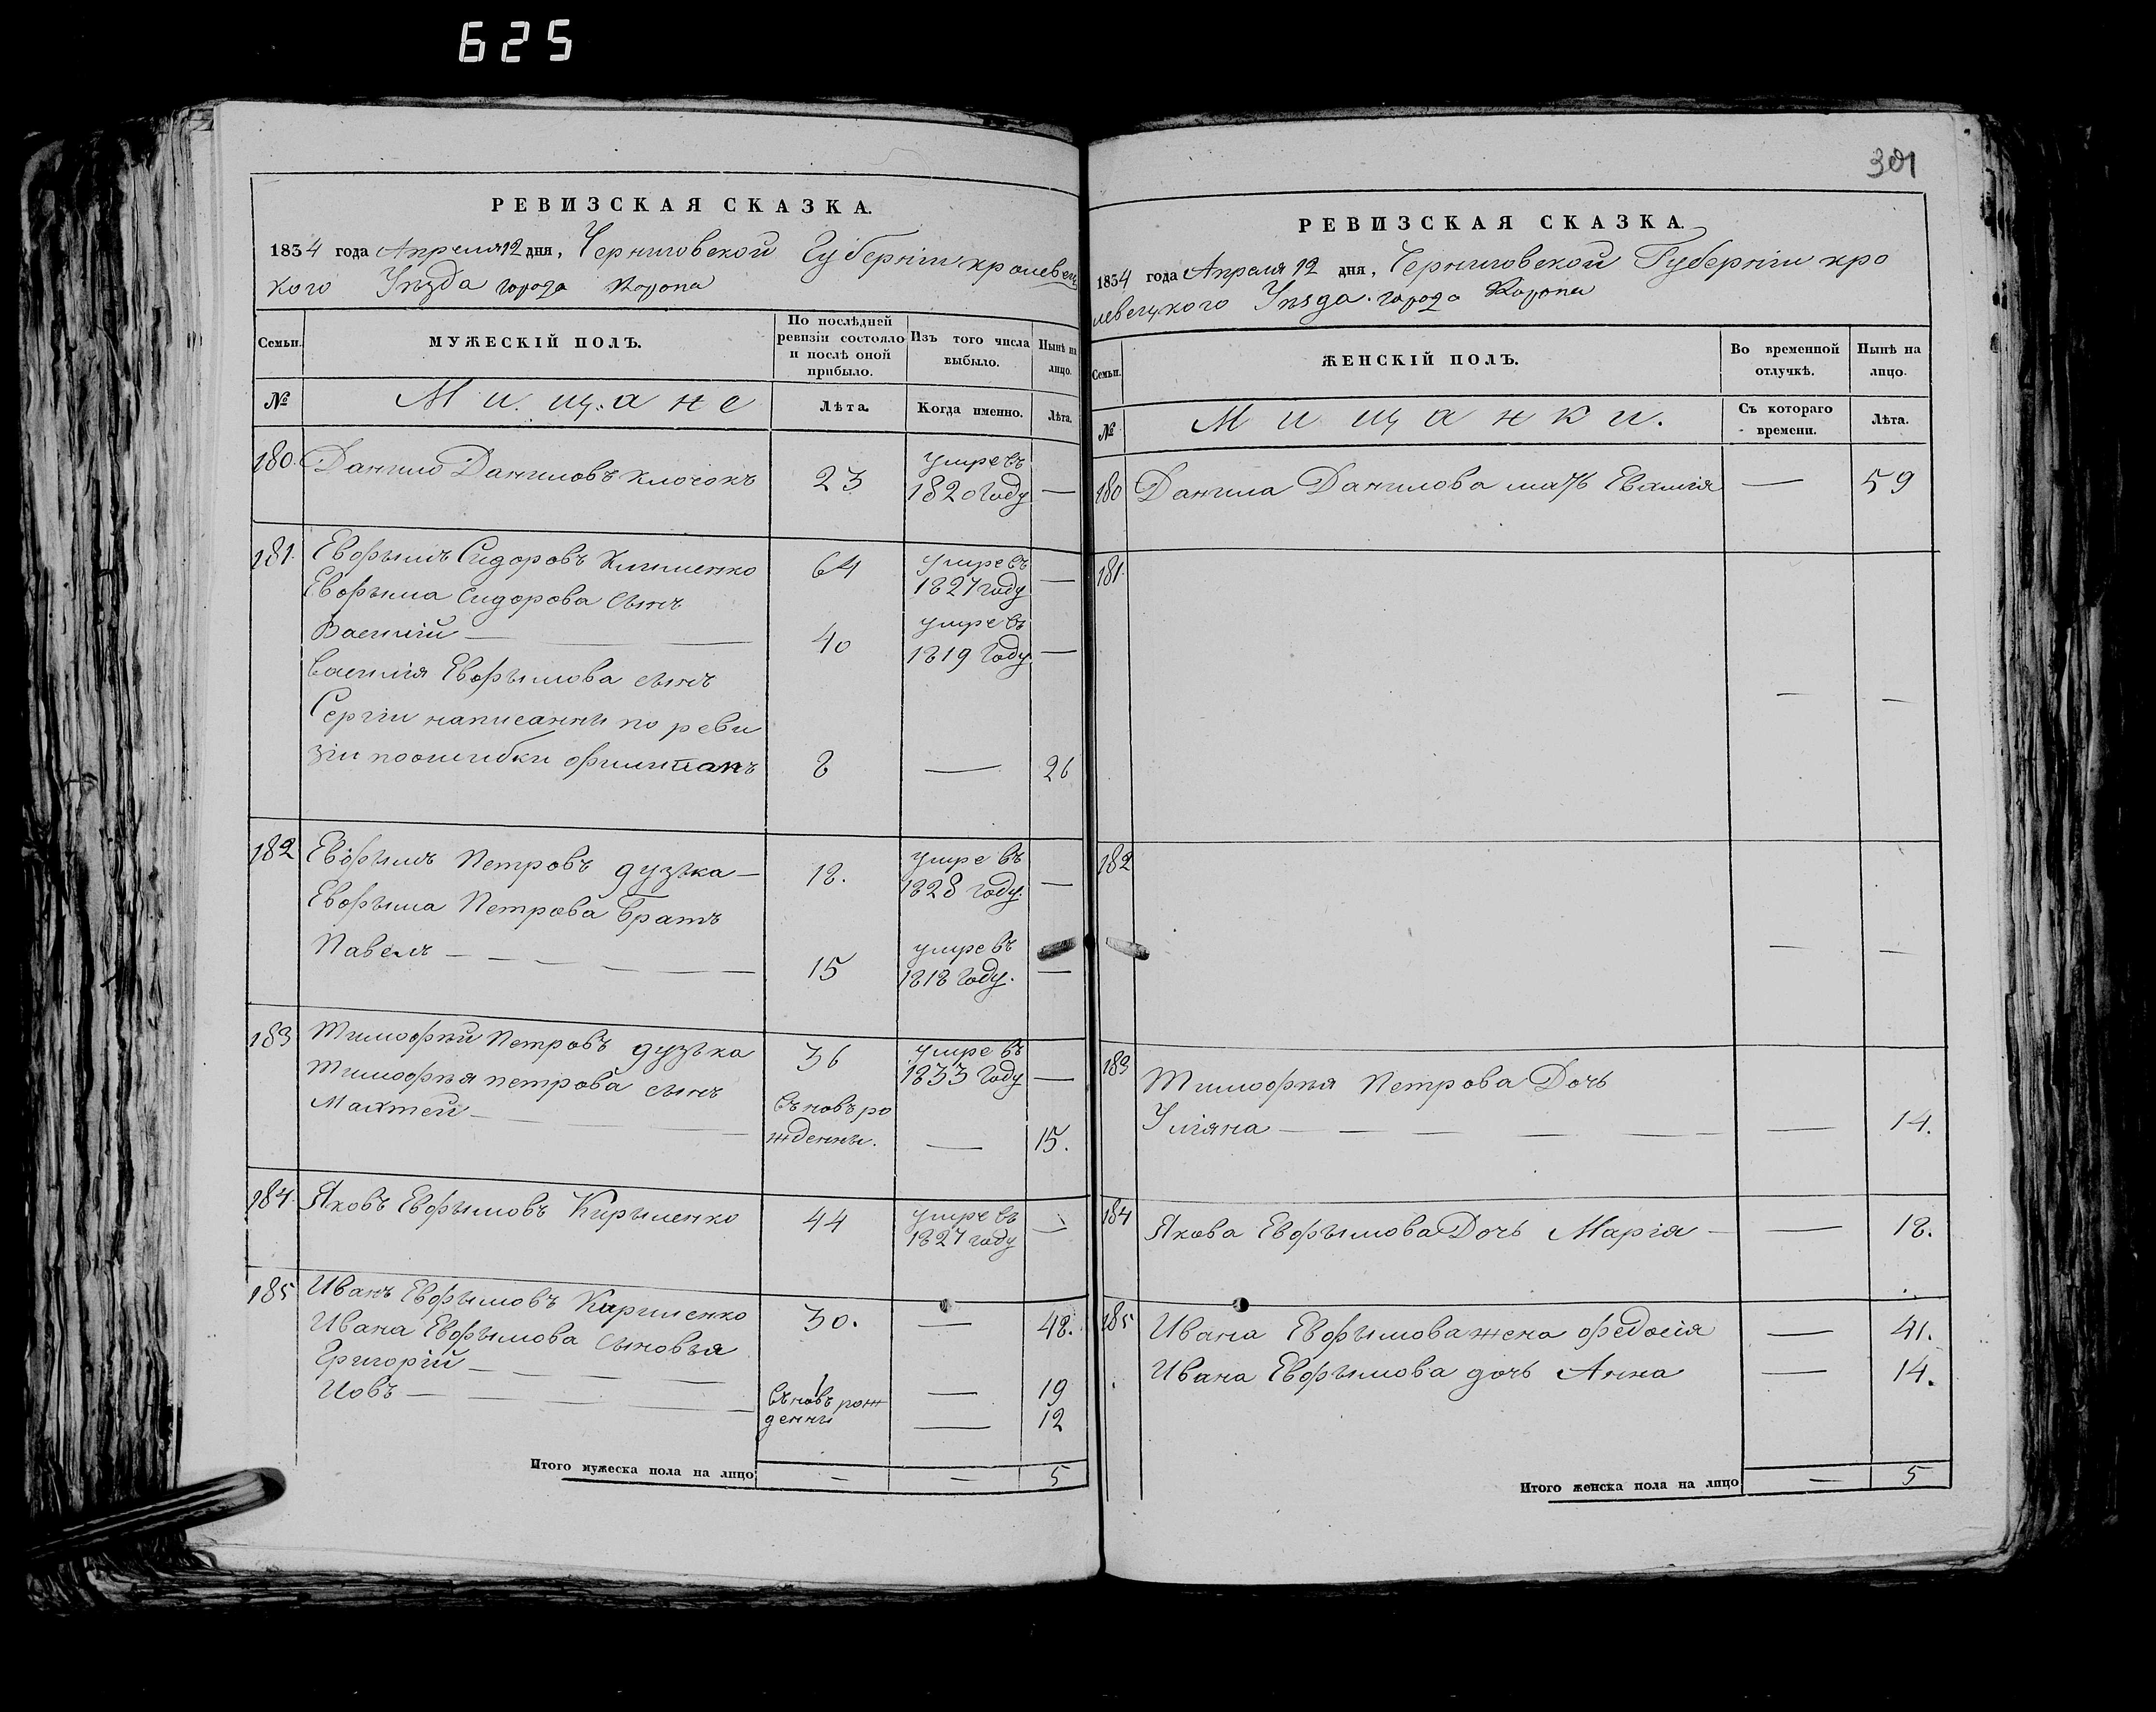 625
РЕВИЗСКАЯ СКАЗКА.
1834 года Апреля 12 дня, Черниговской Губерніи кролевец
кого Уѣзда города Коропа
Семьи.
МУЖЕСКІЙ ПОЛЪ.
По послѣдней ревизіи состояло и послѣ оной прибыло.
Изъ того числа выбыло.
Нынѣ на лицо.
№
Мищане
Лѣта.
Когда именно.
Лѣта.
180. Данило Даниловъ Клочокъ 23 умре въ 1820 Году —
181. Евфымъ Сидоровъ 64 умре въ 1827 году —
Евфыма Сидорова сынъ
Василій — 40 умре въ 1819 Году —
Василія Евфымова сынъ
Сергіи написанни по реви
зіи поошибки 8 — 26
182 Евфымъ Петровъ дузька — 18. умре въ 1828 году. —
Евфыма Петрова братъ
Павелъ — 15 умре въ 1818 Году. —
183 Тимофѣй Петровъ дузька 36 умре въ 1833 Году —
Тимофѣя петрова сынъ
Махтей — Въновъ ро
жденны. — 15.
184. Яковъ Евфымовъ Кирыленко 44 умре въ 1827 году —
185 Иванъ Евфымовъ Кириленко 30. — 48.
Ивана Евфымова сыновья
Григорій — 1 — 19
Иовъ — Въновъ рож
денны — 12
Итого мужеска пола на лицо — — 5
301
РЕВИЗСКАЯ СКАЗКА.
1834 года Апреля 12 дня, Черниговской Губерніи кро
левецкого Уѣзда города Коропа
Семьи.
ЖЕНСКІЙ ПОЛЪ.
Во временной отлучкѣ.
Нынѣ на лицо.
№
Мищанки.
Съ котораго времени.
Лѣта.
180 Данила Данилова мать — 59
181. — —
182 — —
183 Тимофѣя Петрова Дочь
Уліяна — — 14.
184 Якова Евфымова Дочь Марія — — 18.
185 Ивана Евфымова жена Федосія — 41.
Ивана Евфымова дочь Анна — 14.
Итого женска пола на лицо — 5